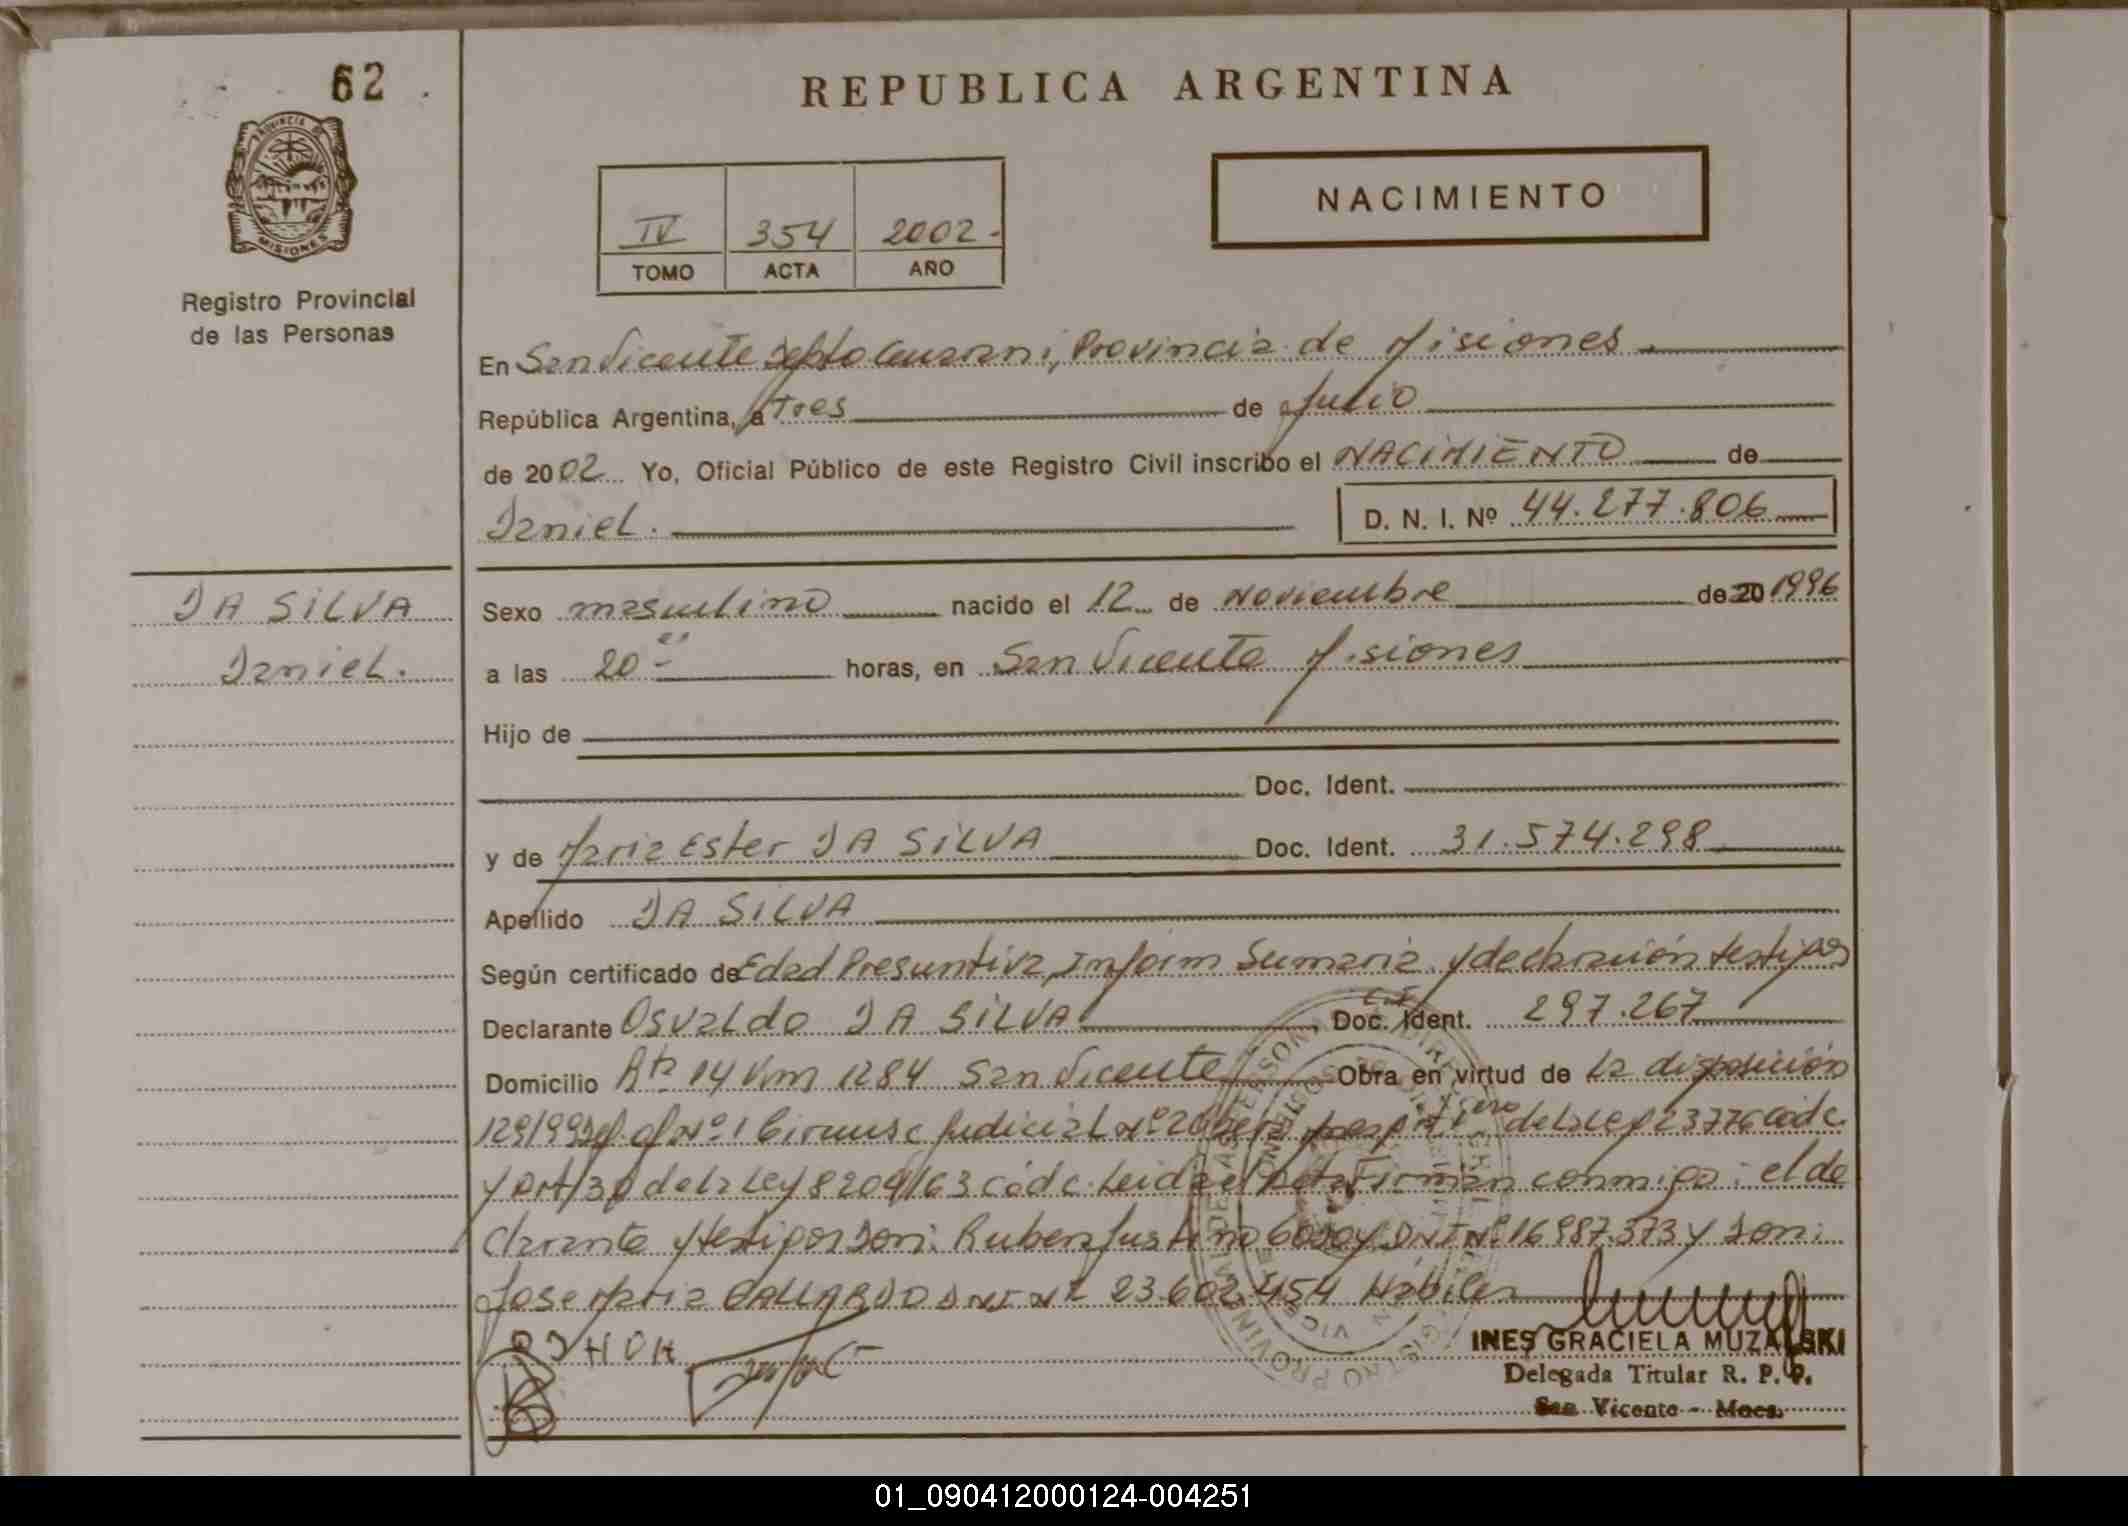 62
REPUBLICA ARGENTINA
PROVINCIA DE
MISIONES
Registro Provincial
de las Personas
NACIMIENTO
IV 354 2002
TOMO ACTA AÑO
En San Vicente Depto Guarani, Provincia de Misiones
República Argentina, a Tres de Julio
de 2002 Yo, Oficial Público de este Registro Civil inscribo el NACIMIENTO de
Daniel. D. N. I. Nº 44.277.806
DA SILVA
Daniel.
Sexo masculino nacido el 12 de Noviembre de 20 1996
a las 20 horas, en San Vicente Misiones
Hijo de
Doc. Ident.
y de Maria Ester DA SILVA Doc. Ident. 31.574.298
Apellido DA SILVA
Según certificado de Edad Presuntiva, Inform Sumaria y declaración testigos
Declarante Osvaldo DA SILVA C.I. Doc. Ident. 297.267
Domicilio Rta 14 Km 1284 San Vicente Obra en virtud de la disposición
129/99 Nº 1 Circunsc Judicial Nº 2 de la Ley 23776 cód c.
y Art 30 de la Ley 8204/63 cód c. Leida el Acta Firman conmigo: el de
clarante y testigos Don: Ruben Justino GODOY DNI Nº 16.987.373 y Don:
Jose Maria GALLARDO DNI Nº 23.602.454 Hábiles
INES GRACIELA MUZALSKI
Delegada Titular R. P. P.
San Vicente - Mnes.
01_090412000124-004251